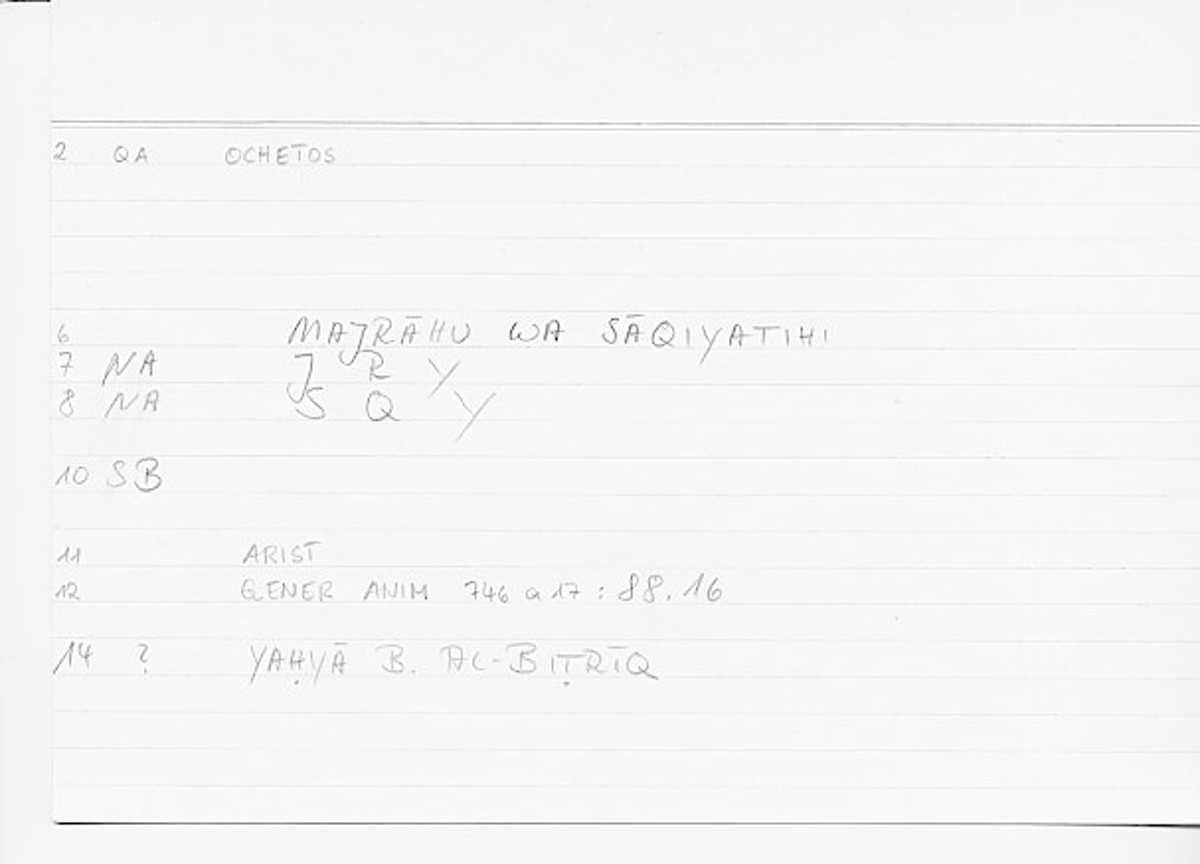 2 QA OCHETOS
6 MAJRĀHU WA SĀQIYATIHI
7 NA J R Y
8 NA S Q Y
10 SB
11 ARIST
12 GENER ANIM 746 a 17 : 88.16
14 ? YAḤYĀ B. AL-BIṬRĪQ